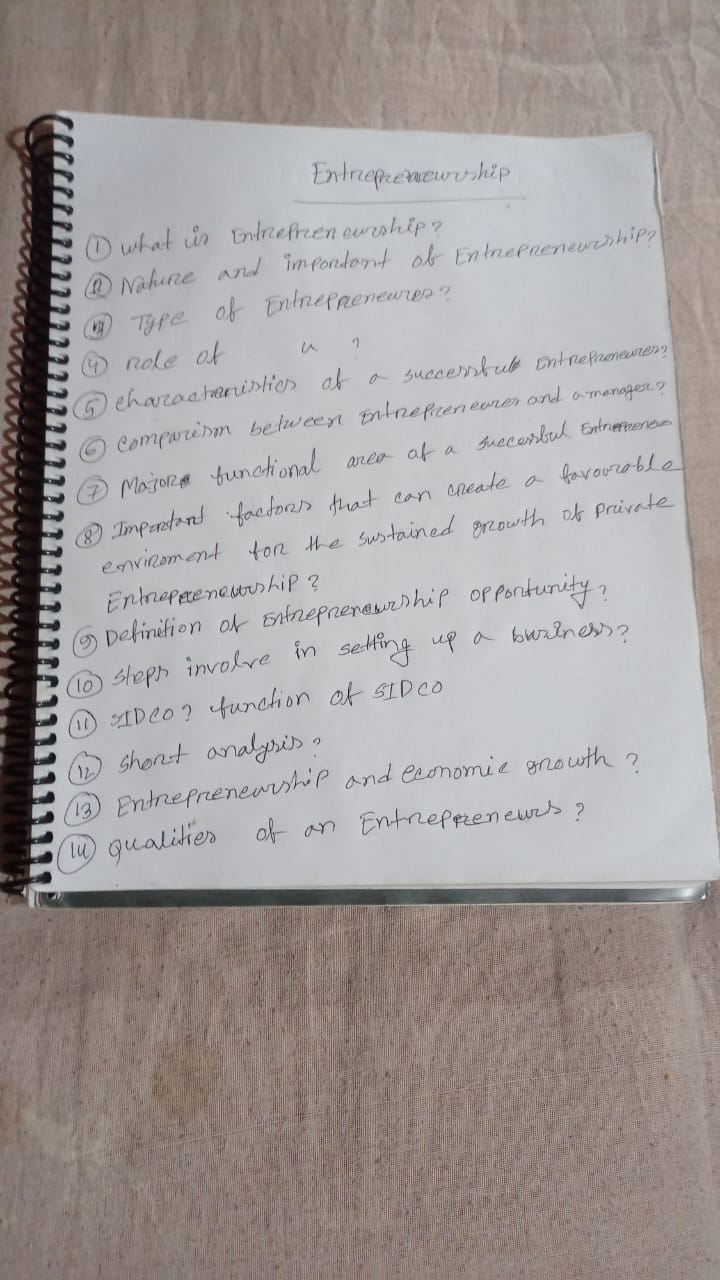 Entrepreneurship
① what is Entrepreneurship?
② Nature and important of Entrepreneurship?
③ Type of Entrepreneures?
④ Role of " ?
⑤ characteristics of a successful Entrepreneures?
⑥ comparism between Entrepreneures and a manager?
⑦ Major functional area of a successful Entrepreneur
⑧ Important factors that can create a favourable
enviroment for the sustained growth of private
Entrepreneurship?
⑨ Definition of Entrepreneurship opportunity?
⑩ Steps involve in setting up a business?
⑪ SIDCO? function of SIDCO
⑫ Short analysis?
⑬ Entrepreneurship and economic growth?
⑭ Qualities of an Entrepreneurs?